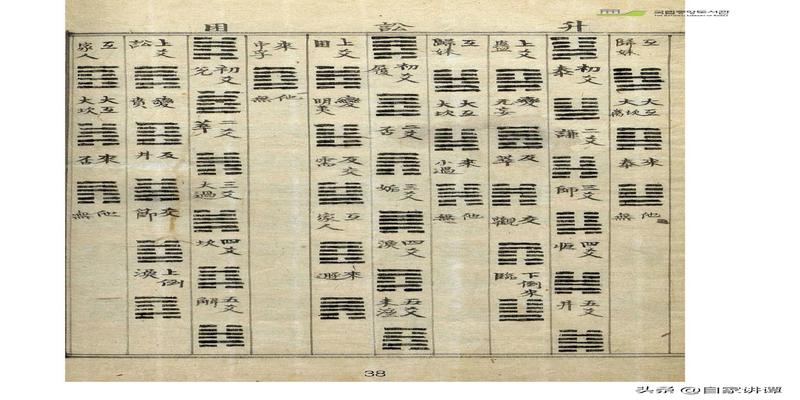 국립중앙도서관
THE NATIONAL LIBRARY OF KOREA
升
訟
困
互歸妹
大互大坎离
來泰
他無
初爻泰
二爻謙
三爻師
四爻恒
五爻井
上爻蠱
變无妄
反萃
交觀
下倒來臨
互歸妹
大互大坎
來小過
他無
初爻履
二爻否
三爻姤
四爻渙
五爻未濟
上爻困
變明夷
反交需
互家人
來遯
來中孚
他無
初爻兌
二爻萃
三爻大過
四爻坎
五爻解
上爻訟
變賁
反井
交節
上倒渙
互家人
大互大坎
來否
他無
38
头条 @自家讲谭